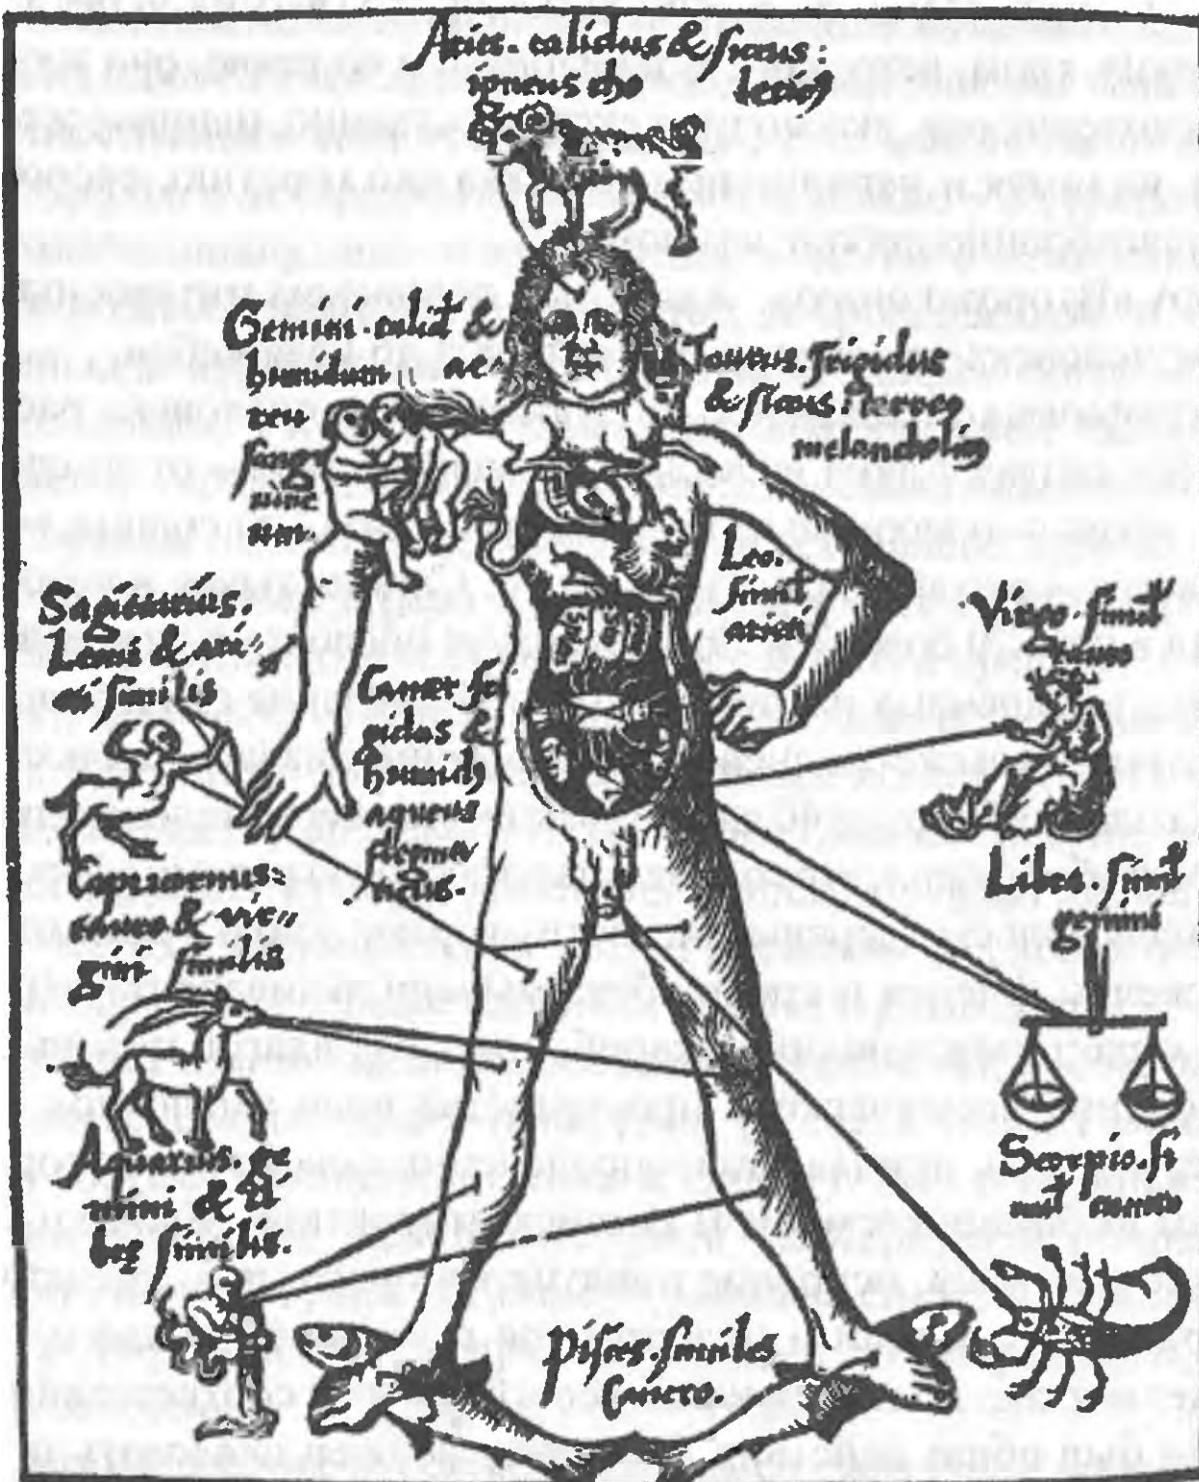 Aries. calidus & siccus:
igneus cho leric9
Gemini. calid9 &
humidum ae-
reu
sangu
nine
um.
Taurus. frigidus
& siccus: terreq
melancholic9
Leo.
simil
arieti
Virgo. simil
tauro
Sagitarius.
Leoni & ari-
eti similis
Cancer fri
gidus &
humid9
aqueus
flegma
ticus.
Capricornus:
tauro & vir-
gini similis
Libra. simil
gemini
Aquarius. ge
mini & li
bre similis.
Scorpio. si
mil cancro
Pisces. similes
cancro.